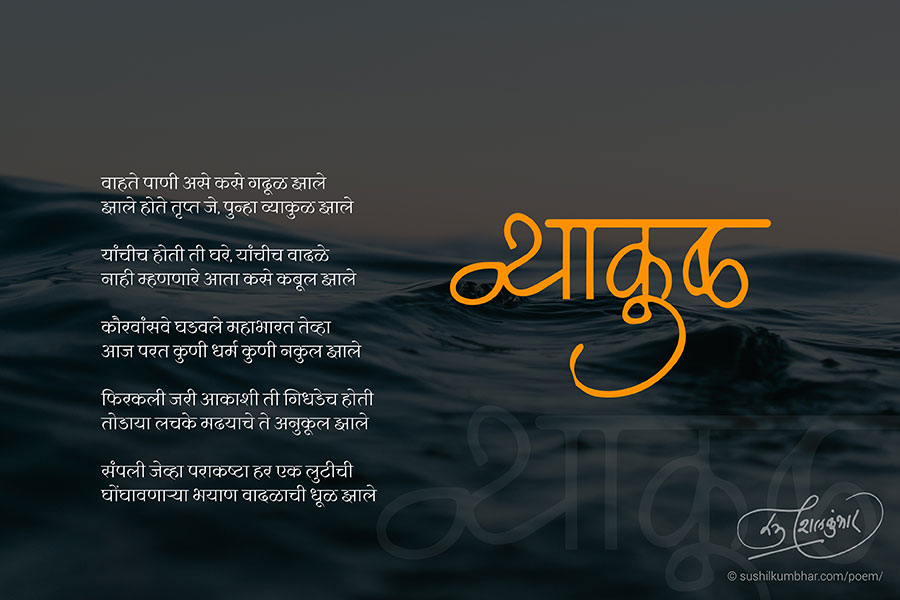 वाहते पाणी असे कसे गढूळ झाले
झाले होते तृप्त जे, पुन्हा व्याकुळ झाले
यांचीच होती ती घरे, यांचीच वाढले
नाही म्हणणारे आता कसे कबूल झाले
कौरवांसवे घडवले महाभारत तेव्हा
आज परत कुणी धर्म कुणी नकुल झाले
फिरकली जरी आकाशी ती गिधडेच होती
तोडाया लचके मढयाचे ते अनुकूल झाले
संपली जेव्हा पराकष्टा हर एक लुटीची
घोंघावणाऱ्या भयाण वाढळाची धूळ झाले
व्याकुळ
व्याकुळ
© sushilkumbhar.com/poem/